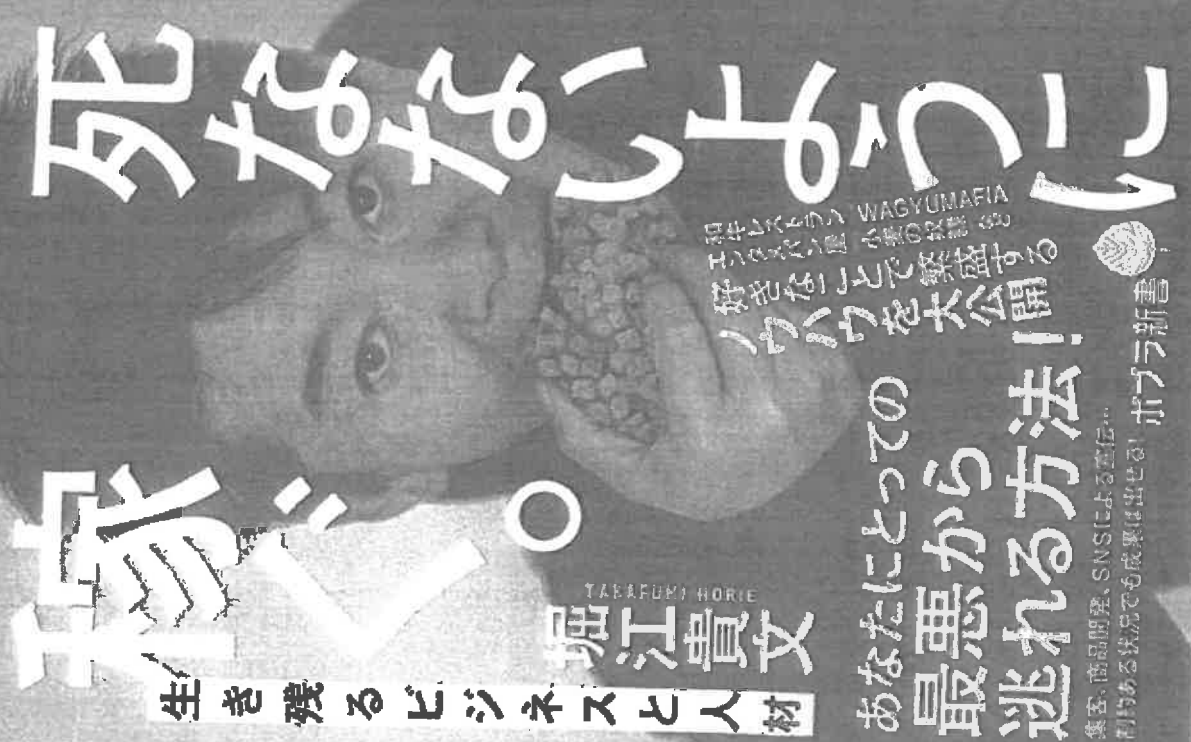 死なないように
稼ぐ。
生き残るビジネスと人材
TAKAFUMI HORIE
堀江貴文
和牛レストラン WAGYUMAFIA
エンタメパン屋 小麦の奴隷 など
好きなことで繁盛する
ノウハウを大公開!
あなたにとっての
最悪から
逃れる方法
集客、商品開発、SNSによる宣伝…
制約ある状況でも成果は出せる!
ポプラ新書